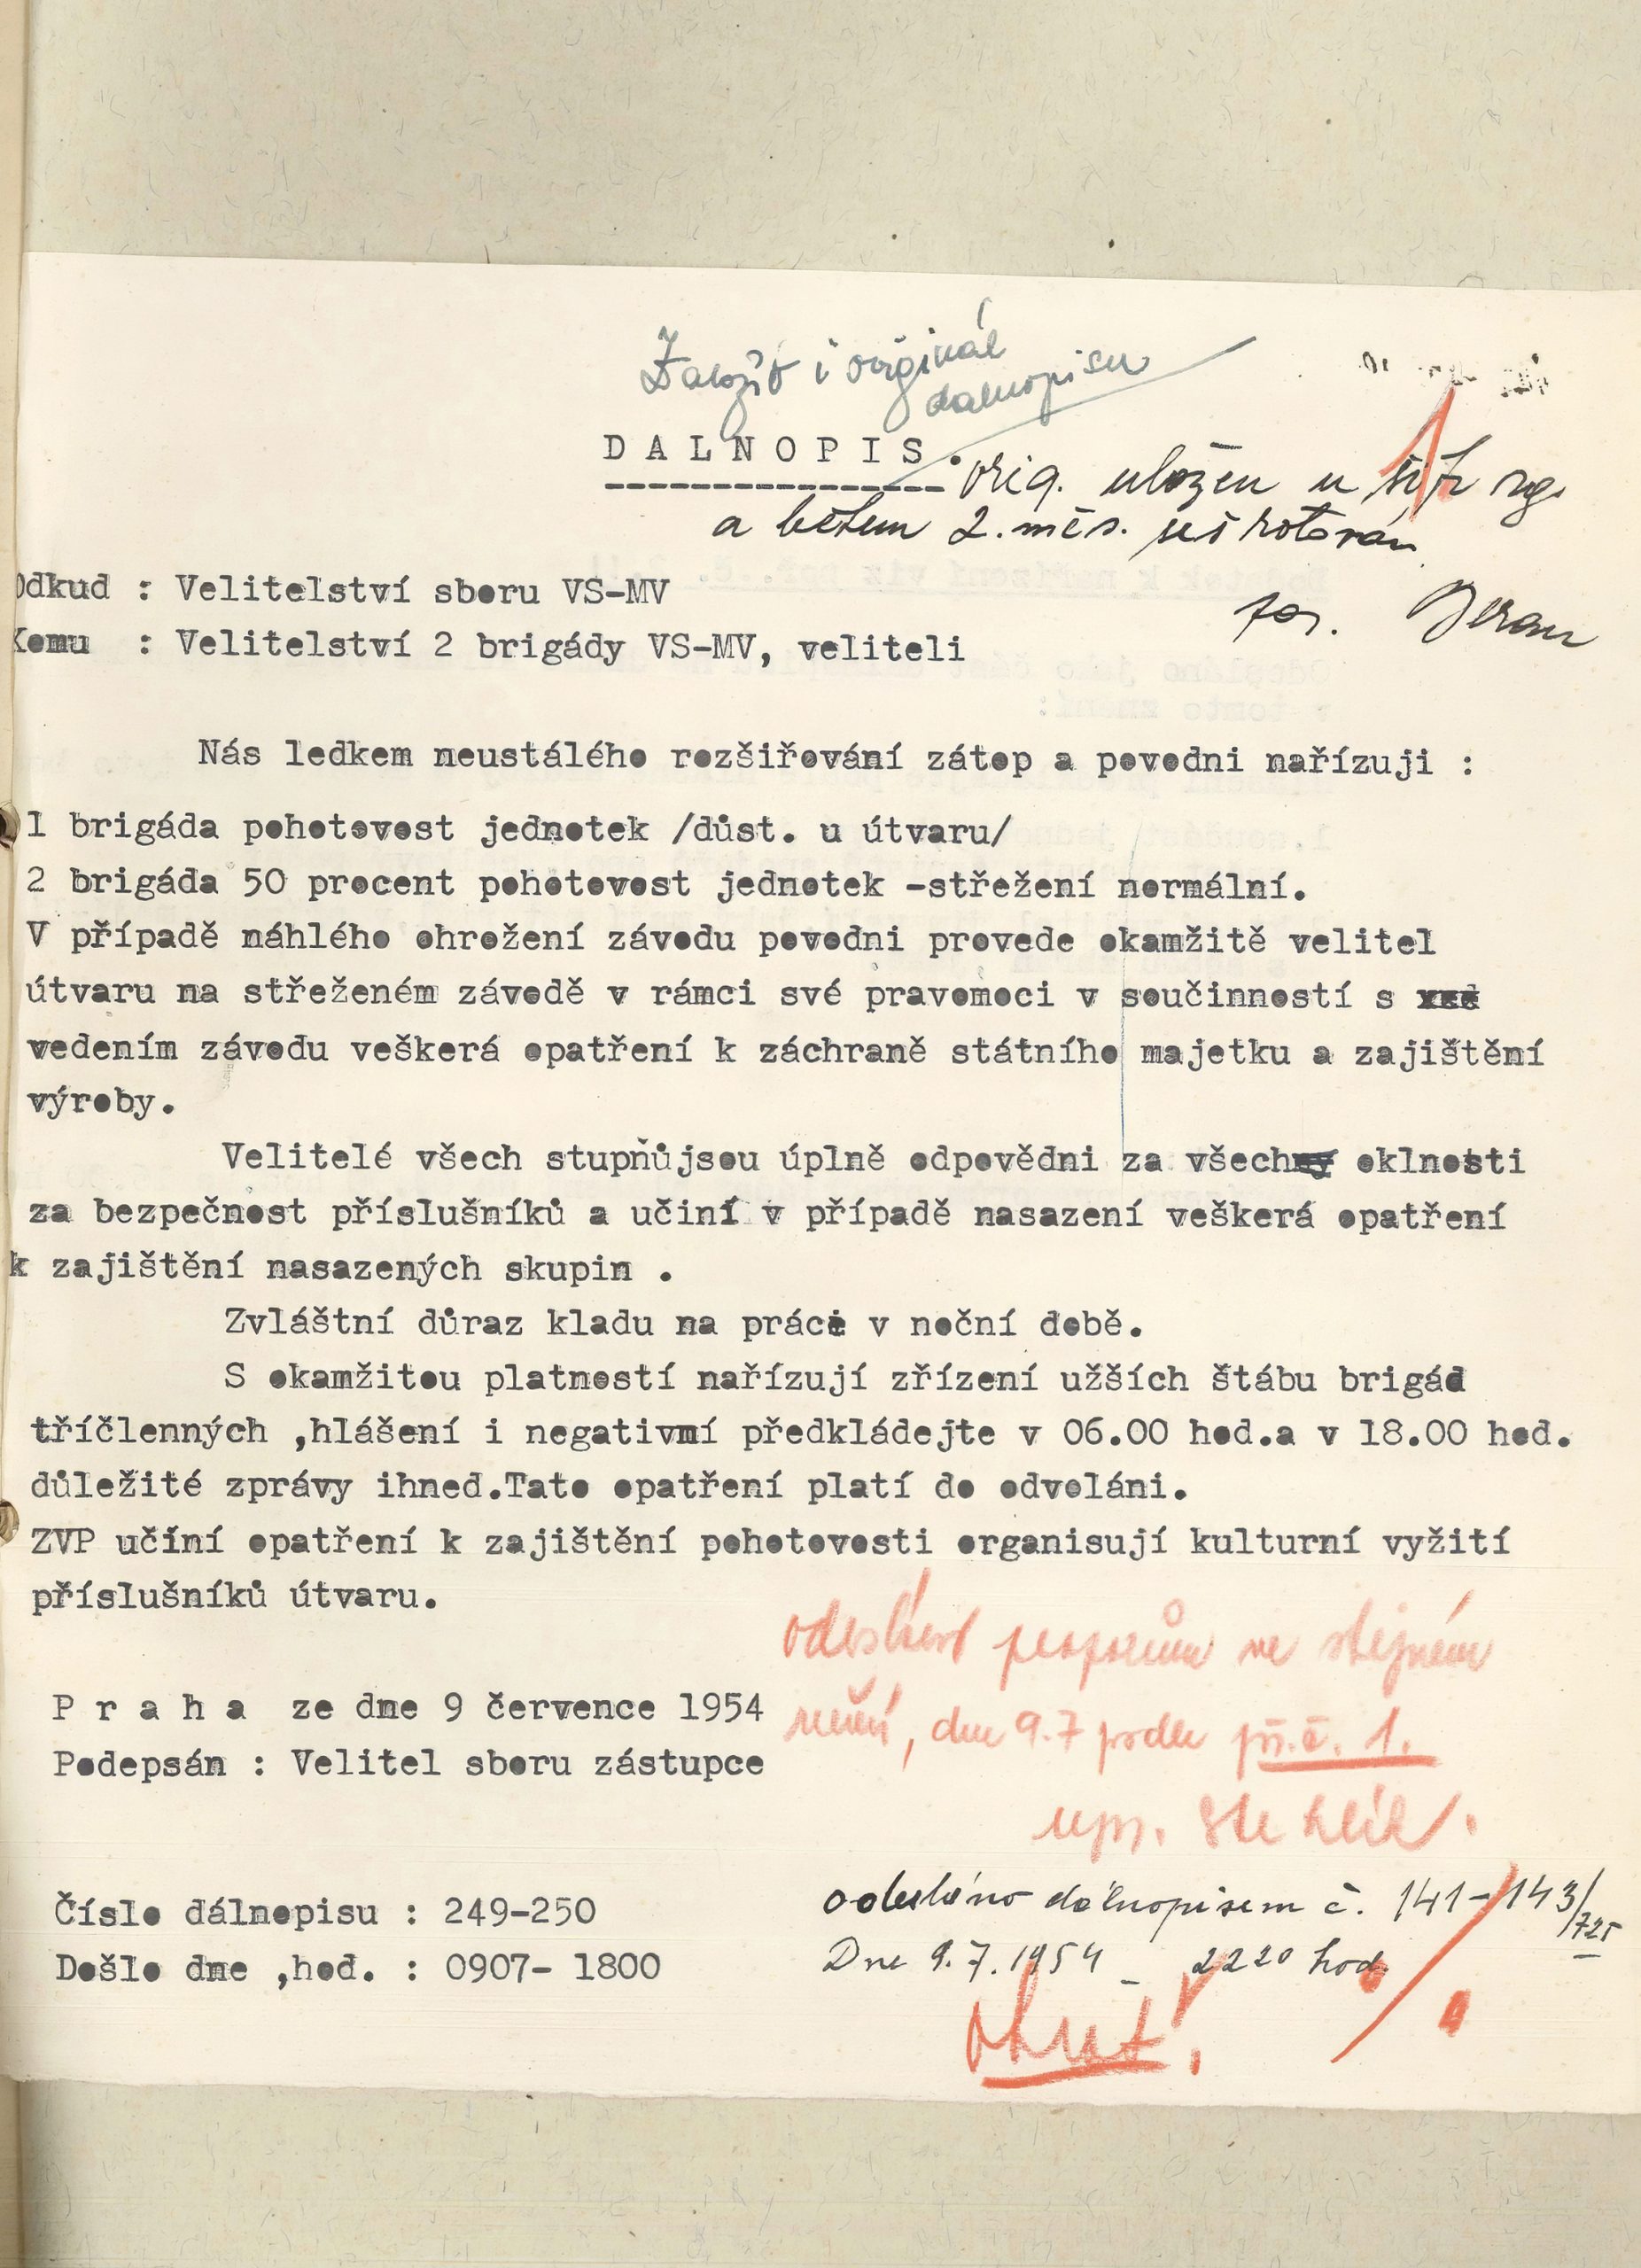 Založit i originál
dalnopisu
DALNOPIS.
orig. uložen u šifr
a během 2. měs. sešrotován
Beran
Odkud : Velitelství sboru VS-MV
Komu : Velitelství 2 brigády VS-MV, veliteli
Nás ledkem neustálého rozšiřování zátop a povodni nařízuji :
1 brigáda pohotovost jednotek /důst. u útvaru/
2 brigáda 50 procent pohotovost jednotek -střežení normální.
V případě náhlého ohrožení závodu povodni provede okamžitě velitel
útvaru na střeženém závodě v rámci své pravomoci v součinností s
vedením závodu veškerá opatření k záchraně státního majetku a zajištění
výroby.
Velitelé všech stupňůjsou úplně odpovědni za všech oklnosti
za bezpečnost příslušníků a učiní v případě nasazení veškerá opatření
k zajištění nasazených skupin .
Zvláštní důraz kladu na práci v noční době.
S okamžitou platností nařízují zřízení užších štábu brigád
tříčlenných ,hlášení i negativní předkládejte v 06.00 hod.a v 18.00 hod.
důležité zprávy ihned.Tato opatření platí do odvoláni.
ZVP učíní opatření k zajištění pohotovosti organisují kulturní vyžití
příslušníků útvaru.
odeslat praporům ve stejném
znění, dne 9.7 podle př.č. 1.
Praha ze dne 9 července 1954
Podepsán : Velitel sboru zástupce
npr. Stehlík.
Číslo dálnopisu : 249-250
odesláno dálnopisem č. 141-143/725
Došlo dne ,hod. : 0907- 1800
Dne 9.7.1954 - 2220 hod.